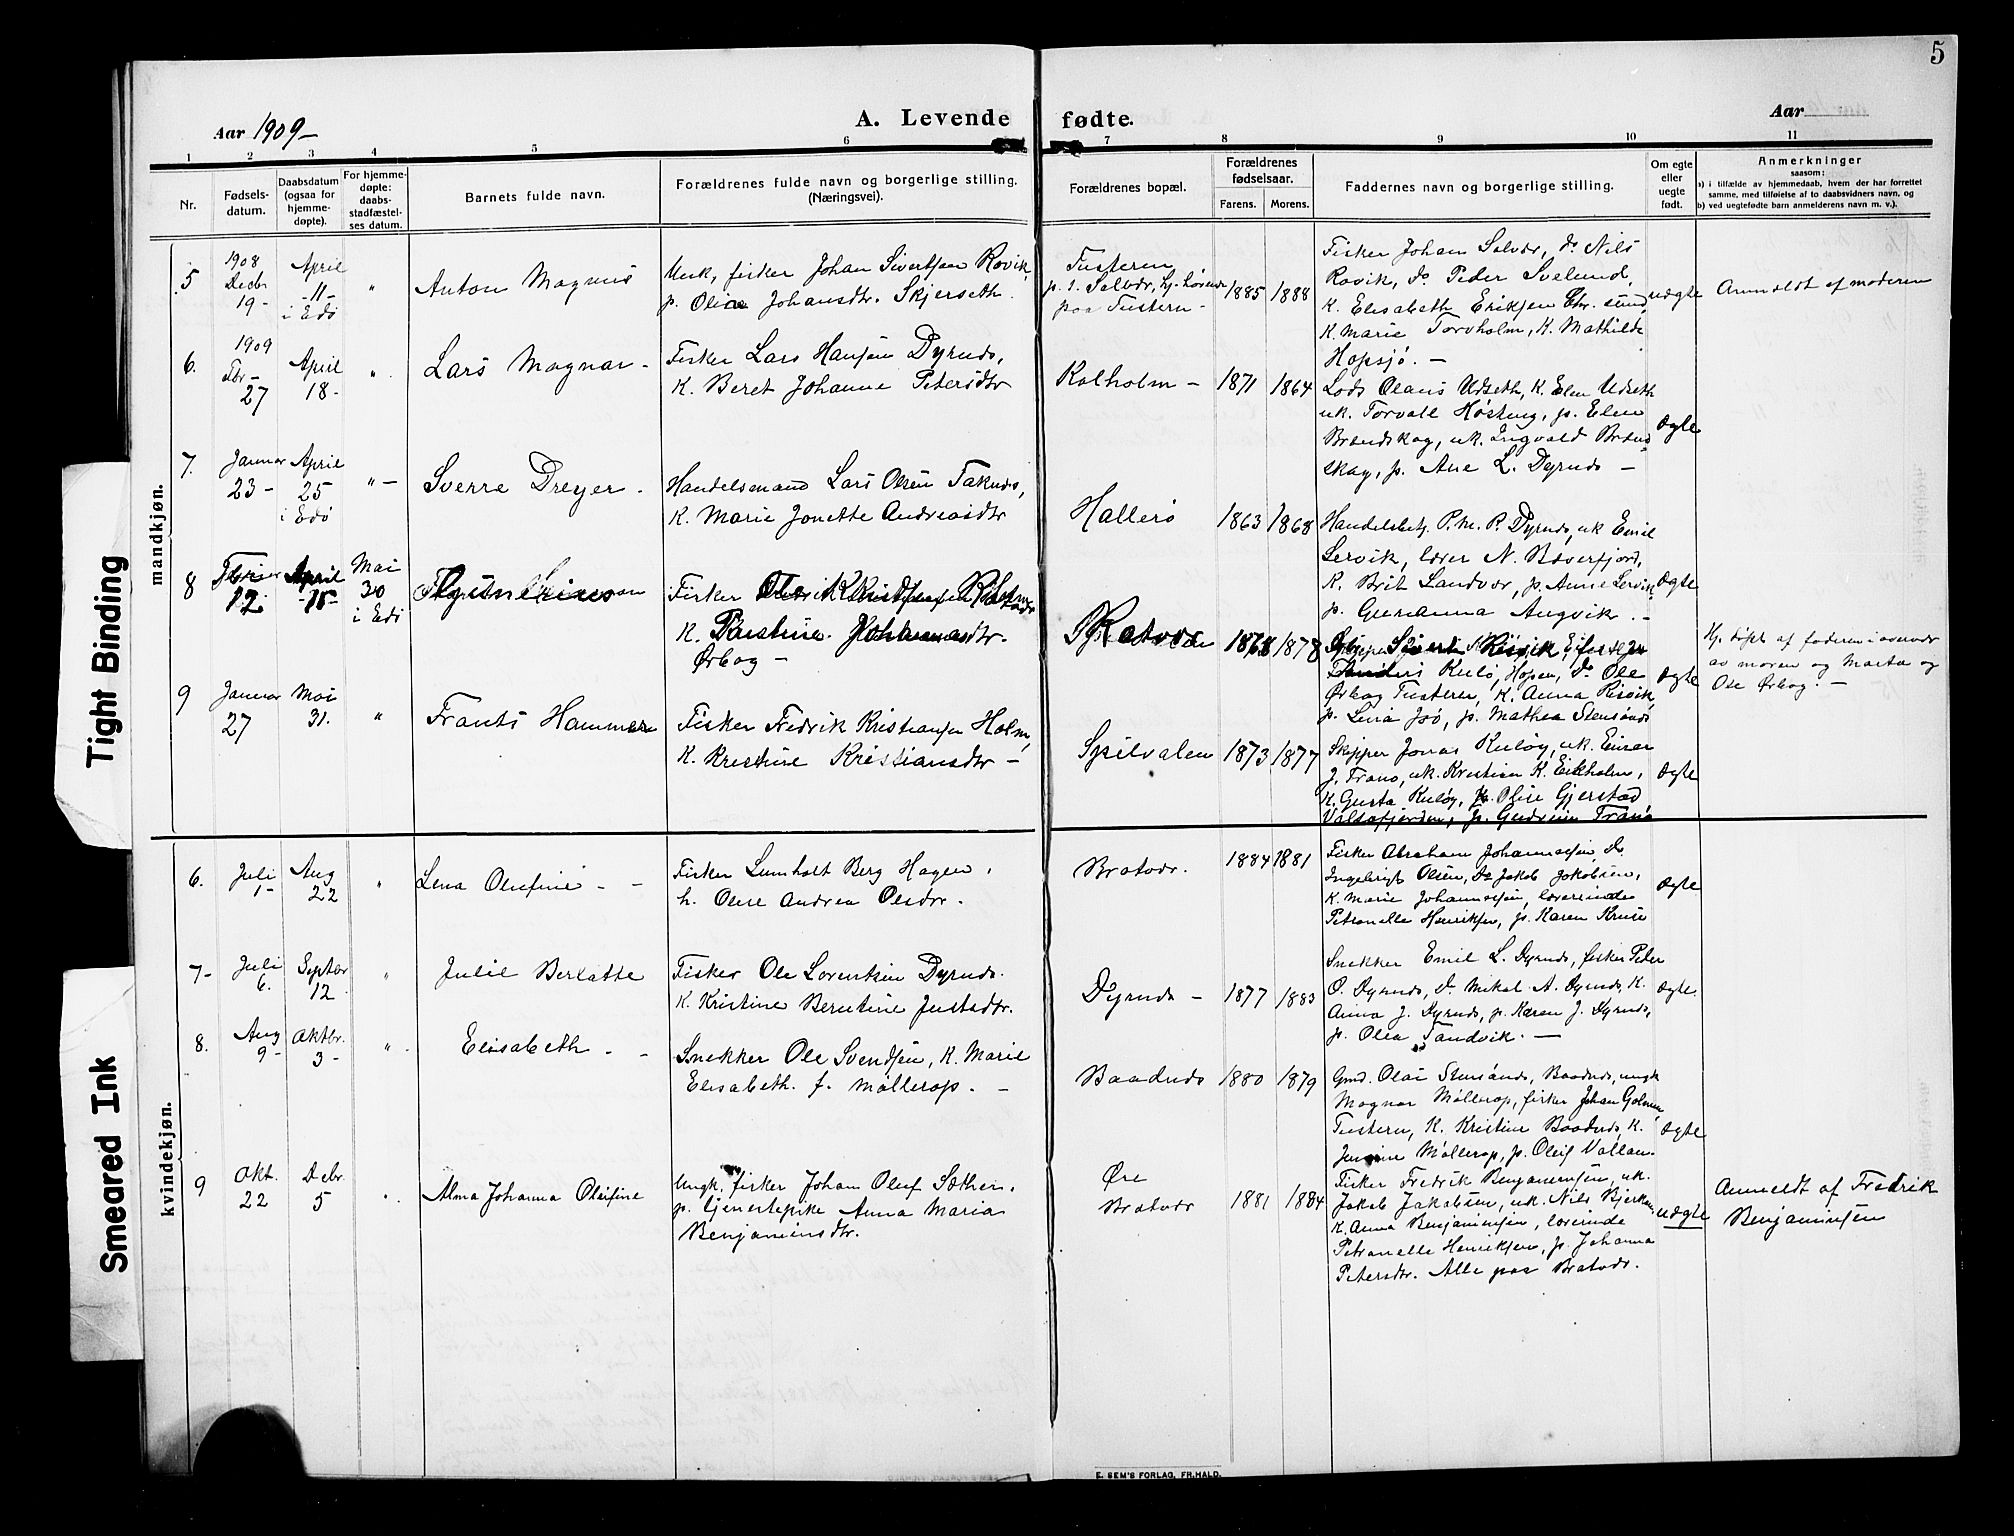 5
Aar 1909-
A. Levende fødte.
Aar
1 2 3 4 5 6 7 8 9 10 11
Nr.
Fødsels-
datum.
Daabsdatum
(ogsaa for
hjemme-
døpte).
For hjemme-
døpte:
daabs-
stadfæstel-
ses datum.
Barnets fulde navn.
Forældrenes fulde navn og borgerlige stilling.
(Næringsvei).
Forældrenes bopæl.
Forældrenes
fødselsaar.
Farens. Morens.
Faddernes navn og borgerlige stilling.
Om egte
eller
uegte
født.
Anmerkninger
saasom:
a) i tilfælde av hjemmedaab, hvem der har forrettet
samme, med tilføielse af to daabsvidners navn, og
b) ved uegtefødte barn anmelderens navn m. v.).
mandkjøn.
5
1908
Decbr
19 -
April
-11-
i Edø
"
Anton Magnus
Unk, fisker Johan Sivertsen Rovik,
p. Oline Johansdtr. Skjerseth.
Fusteren
paa Fusteren -
1885
1888
Fisker Johan Solvær, do Nils
Rovik, do Peder Svelund,
K. Elisabeth Eriksen
K. Marie Torvholm, K. Mathilde
Hopsjø. -
uægte
Anmeldt af moderen
6.
1909
Fbr-
27
April
18 -
"
Lars Magnar -
Fisker Lars Hansen Dyrnds,
K. Beret Johanne Petersdtr
Kalholm -
1871
1864
Lods Olaus Udseth, K. Elen Udseth
uk. Torvall p. Elen
Brandskag, uk. Ingvald Brand
skag, p. Ane L. Dyrnds -
Ægte
7.
Januar
23 -
April
25
i Edø
" -
Sverre Dreyer -
Handelsmand Lars Olsen Taknds,
K. Marie Jonette Andreasdtr
Hallerø
1863
1868
Handelsbetj. P. M. P. Dyrnds, uk Emil
Lervik, lærer N. Bæverfjord,
K. Brit Landvær, p. Anne Lervik
p. Gurianna Angvik. -
Ægte
8
12
April
-15-
Mai
30
i Edø
Fisker
K. Johannesdtr.
Ørbog -
1878
Kulø, Hopen, do Ole
Ørbog Fusteren, K. Anna Risvik
p. Lina Jsø, p. Mathea Stensønds
Ægte
Hj. døpt af faderen i overvær
av moren og Marta og
Ose Ørbog. -
9
Januar
27
Mai
31.
"
Frants Hammer
Fisker Fredrik Kristiansen Holm,
K. Kristine Kristiansdtr -
Spilvalen
1873
1877
Skipper Jonas Kuløy, uk. Einar
J. Tranø, uk. Kristian K. Eikholm,
K. Gusta Kuløy, p. Oline Gjerstad
Valsøfjorden, p. Gudrun Tranø
Ægte
kvindekjøn.
6.
Juli
1-
Aug
22
"
Lena Olufine - -
Fisker Lumholt Berg Hagen,
h. Oline Andrea Olsdtr.
Bratvær.
1884
1881
Fisker Abraham Johannesen, do.
Ingebrigt Olsen, do Jakob Jakobsen,
K. Marie Johannesen, lærerinde
Petronelle Henriksen, p. Karen Kruse
Ægte
7-
Juli
6.
Septbr
12
"
Julie Berlatte
Fisker Ole Lorentsen Dyrnds.
K. Kristine Berntine Justadtr.
Dyrnds -
1877
1883
Snekker Emil L. Dyrnds, fisker Peder
O. Dyrnds, do. Mikal A. Dyrnds, K.
Anna J. Dyrnds, p. Karen J. Dyrnds,
p. Olea Tandvik. -
Ægte.
8.
Aug
9 -
Oktbr.
3 -
"
Elisabeth. -
Snekker Ole Svendsen, K. Marie
Elisabeth. f. Møllerop. -
Baadnds
1880
1879
Gmd. Olai Stensønds, Baadnds, ungk
Magnar Møllerop, fisker Johan Golmen
Fusteren, K. Kristine Baadnds, K.
Jensine Møllerop, p. Oleif Vullan.
Ægte
9
Okt.
22
Debr.
5
"
Alma Johanna Oleifine
Ungk. fisker Johan Oluf Sæther.
p. tjenestepike Anna Maria
Benjaminsdtr.
Øre
Bratvær
1881
1884
Fisker Fredrik Benjaminsen, uk.
Jakob Jakobsen, uk. Nils Bjerkan,
K. Anna Benjaminsen, lærerinde
Petronelle Henriksen, p. Johanna
Petersdtr. Alle paa Bratvær.
uægte
Anmeldt af Fredrik
Benjaminsen
E. SEM'S FORLAG, FR.HALD.
Tight Binding
Smeared Ink